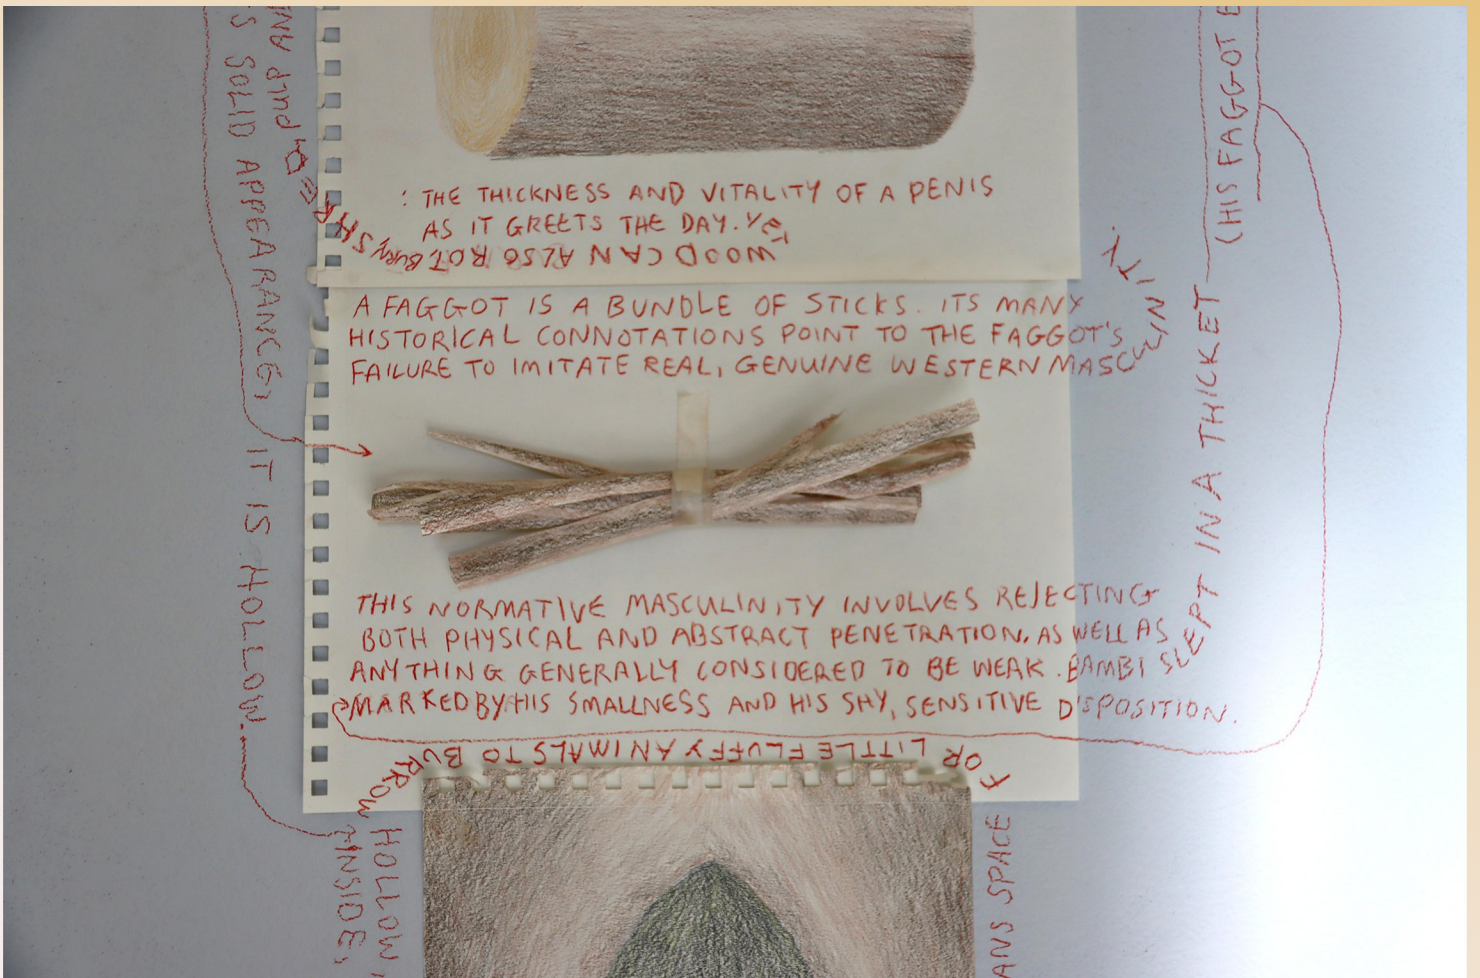 : THE THICKNESS AND VITALITY OF A PENIS
AS IT GREETS THE DAY. YET
WOOD CAN ALSO ROT, BURN,
PULP AN
S SOLID APPEARANCE, IT IS HOLLOW.
A FAGGOT IS A BUNDLE OF STICKS. ITS MANY
HISTORICAL CONNOTATIONS POINT TO THE FAGGOT'S
FAILURE TO IMITATE REAL, GENUINE WESTERN MASCULINITY.
THIS NORMATIVE MASCULINITY INVOLVES REJECTING
BOTH PHYSICAL AND ABSTRACT PENETRATION, AS WELL AS
ANYTHING GENERALLY CONSIDERED TO BE WEAK. BAMBI SLEPT IN A THICKET
(HIS FAGGOT
MARKED BY HIS SMALLNESS AND HIS SHY, SENSITIVE DISPOSITION.
HOLLOW
ANS SPACE
FOR LITTLE FLUFFY ANIMALS TO BURROW
INSIDE,